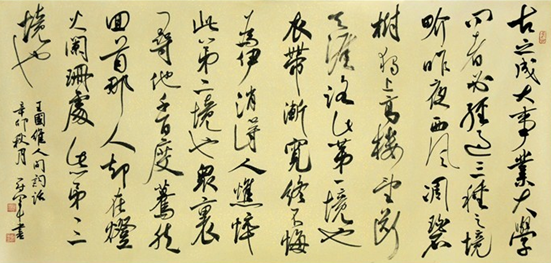 古之成大事業大學
問者必經過三種之境
界昨夜西風凋碧
樹獨上高樓望斷
天涯路此第一境也
衣帶漸寬終不悔
為伊消得人憔悴
此第二境也眾裏
尋他千百度驀然
回首那人却在燈
火闌珊處此第三
境也
王國維人间詞話
辛卯秋月 書